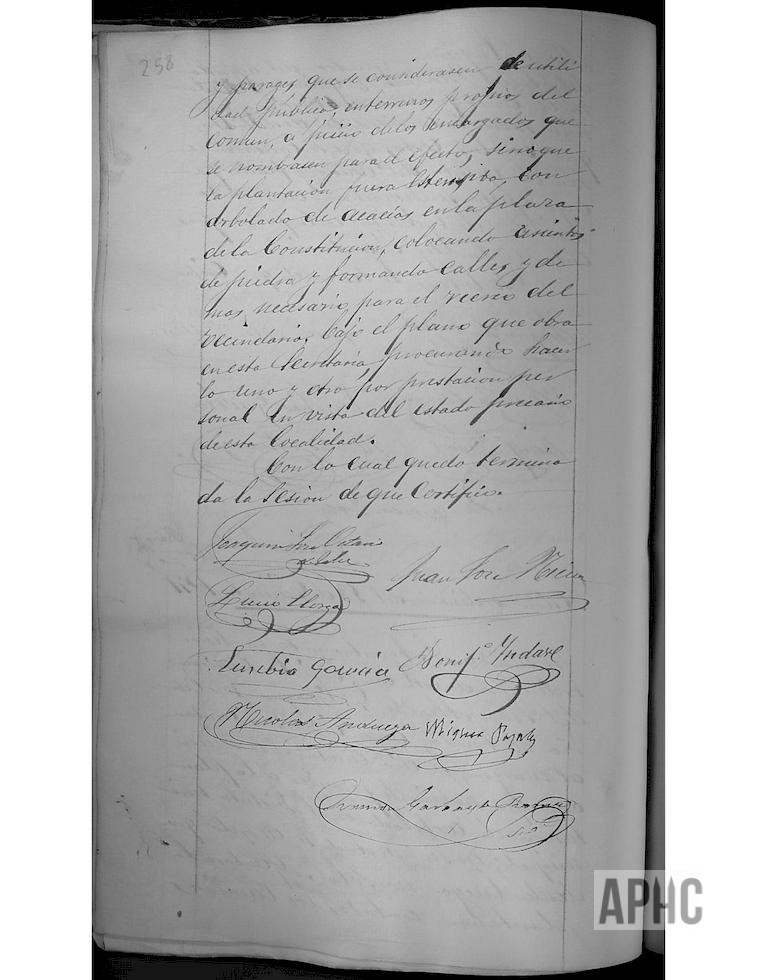 258
y parages que se considerasen de utili
dad publica, en terrenos propios del
comun, a juicio de los encargados que
se nombrasen para el efecto, sino que
la plantación fuera estensiba, con
arbolado de acacias en la plaza
de la Constitucion, colocando asientos
de piedra y formando calles y de
mas necesario para el recreo del
vecindario, bajo el plano que obra
en esta Secretaría procurando hacer
lo uno y otro por prestacion per
sonal en vista del estado precario
de esta localidad.
Con lo cual quedó termina
da la Sesion de que Certifico.
Joaquin
Juan José
Lucio Llorza
Eusebio Garcia Bonif.º Yndave
Nicolas Andueza Miguel
Srio
APHC